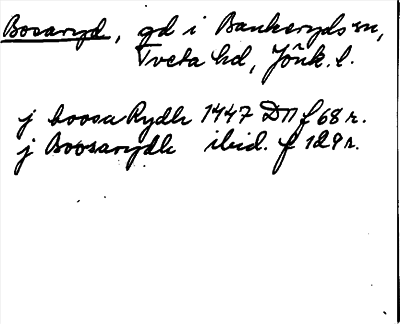 Bosaryd, gd i Bankeryds sn,
Tveta hd, Jönk. l.
j boosa Rydh 1447 DN f 68 r.
j Boosarydh ibid. f 129 r.